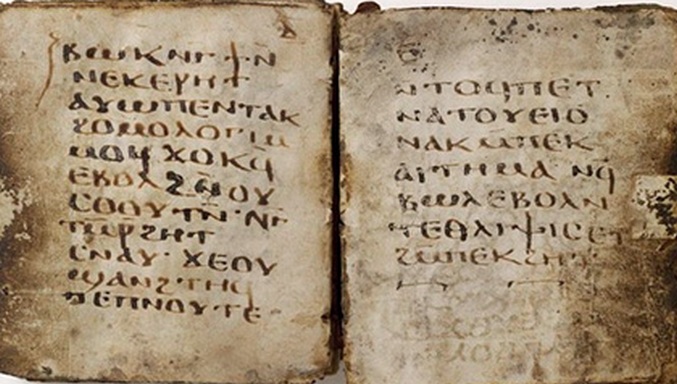 ⲃⲱⲕ ⲛⲅϯⲛ
ⲛⲉⲕⲉⲣⲏⲧ
ⲁⲩⲱ ⲡⲉⲛⲧⲁⲕ
ϩⲟⲙⲟⲗⲟⲅⲓⲁ
ⲙⲟϥ ϫⲟⲕϥ
ⲉⲃⲟⲗ ϩⲛ ⲟⲩ
ⲥⲟⲟⲩⲧⲛ · ⲛⲅ
ⲧⲙⲣϩⲏⲧ
ⲥⲛⲁⲩ · ϫⲉ ⲟⲩ
ϣⲁⲛϩⲧⲏϥ
ⲡⲉ ⲡⲛⲟⲩⲧⲉ
ⲛⲧⲟϥ ⲡⲉⲧ
ⲛⲁⲧⲟⲩⲉⲓⲟ
ⲛⲁⲕ ⲙⲡⲉⲕ
ⲁⲓⲧⲏⲙⲁ ⲛϥ
ⲃⲱⲗ ⲉⲃⲟⲗ ⲛ
ⲧⲉⲑⲗⲓⲯⲓⲥ ⲉⲧ
ϩⲙⲡⲉⲕϩⲏⲧ